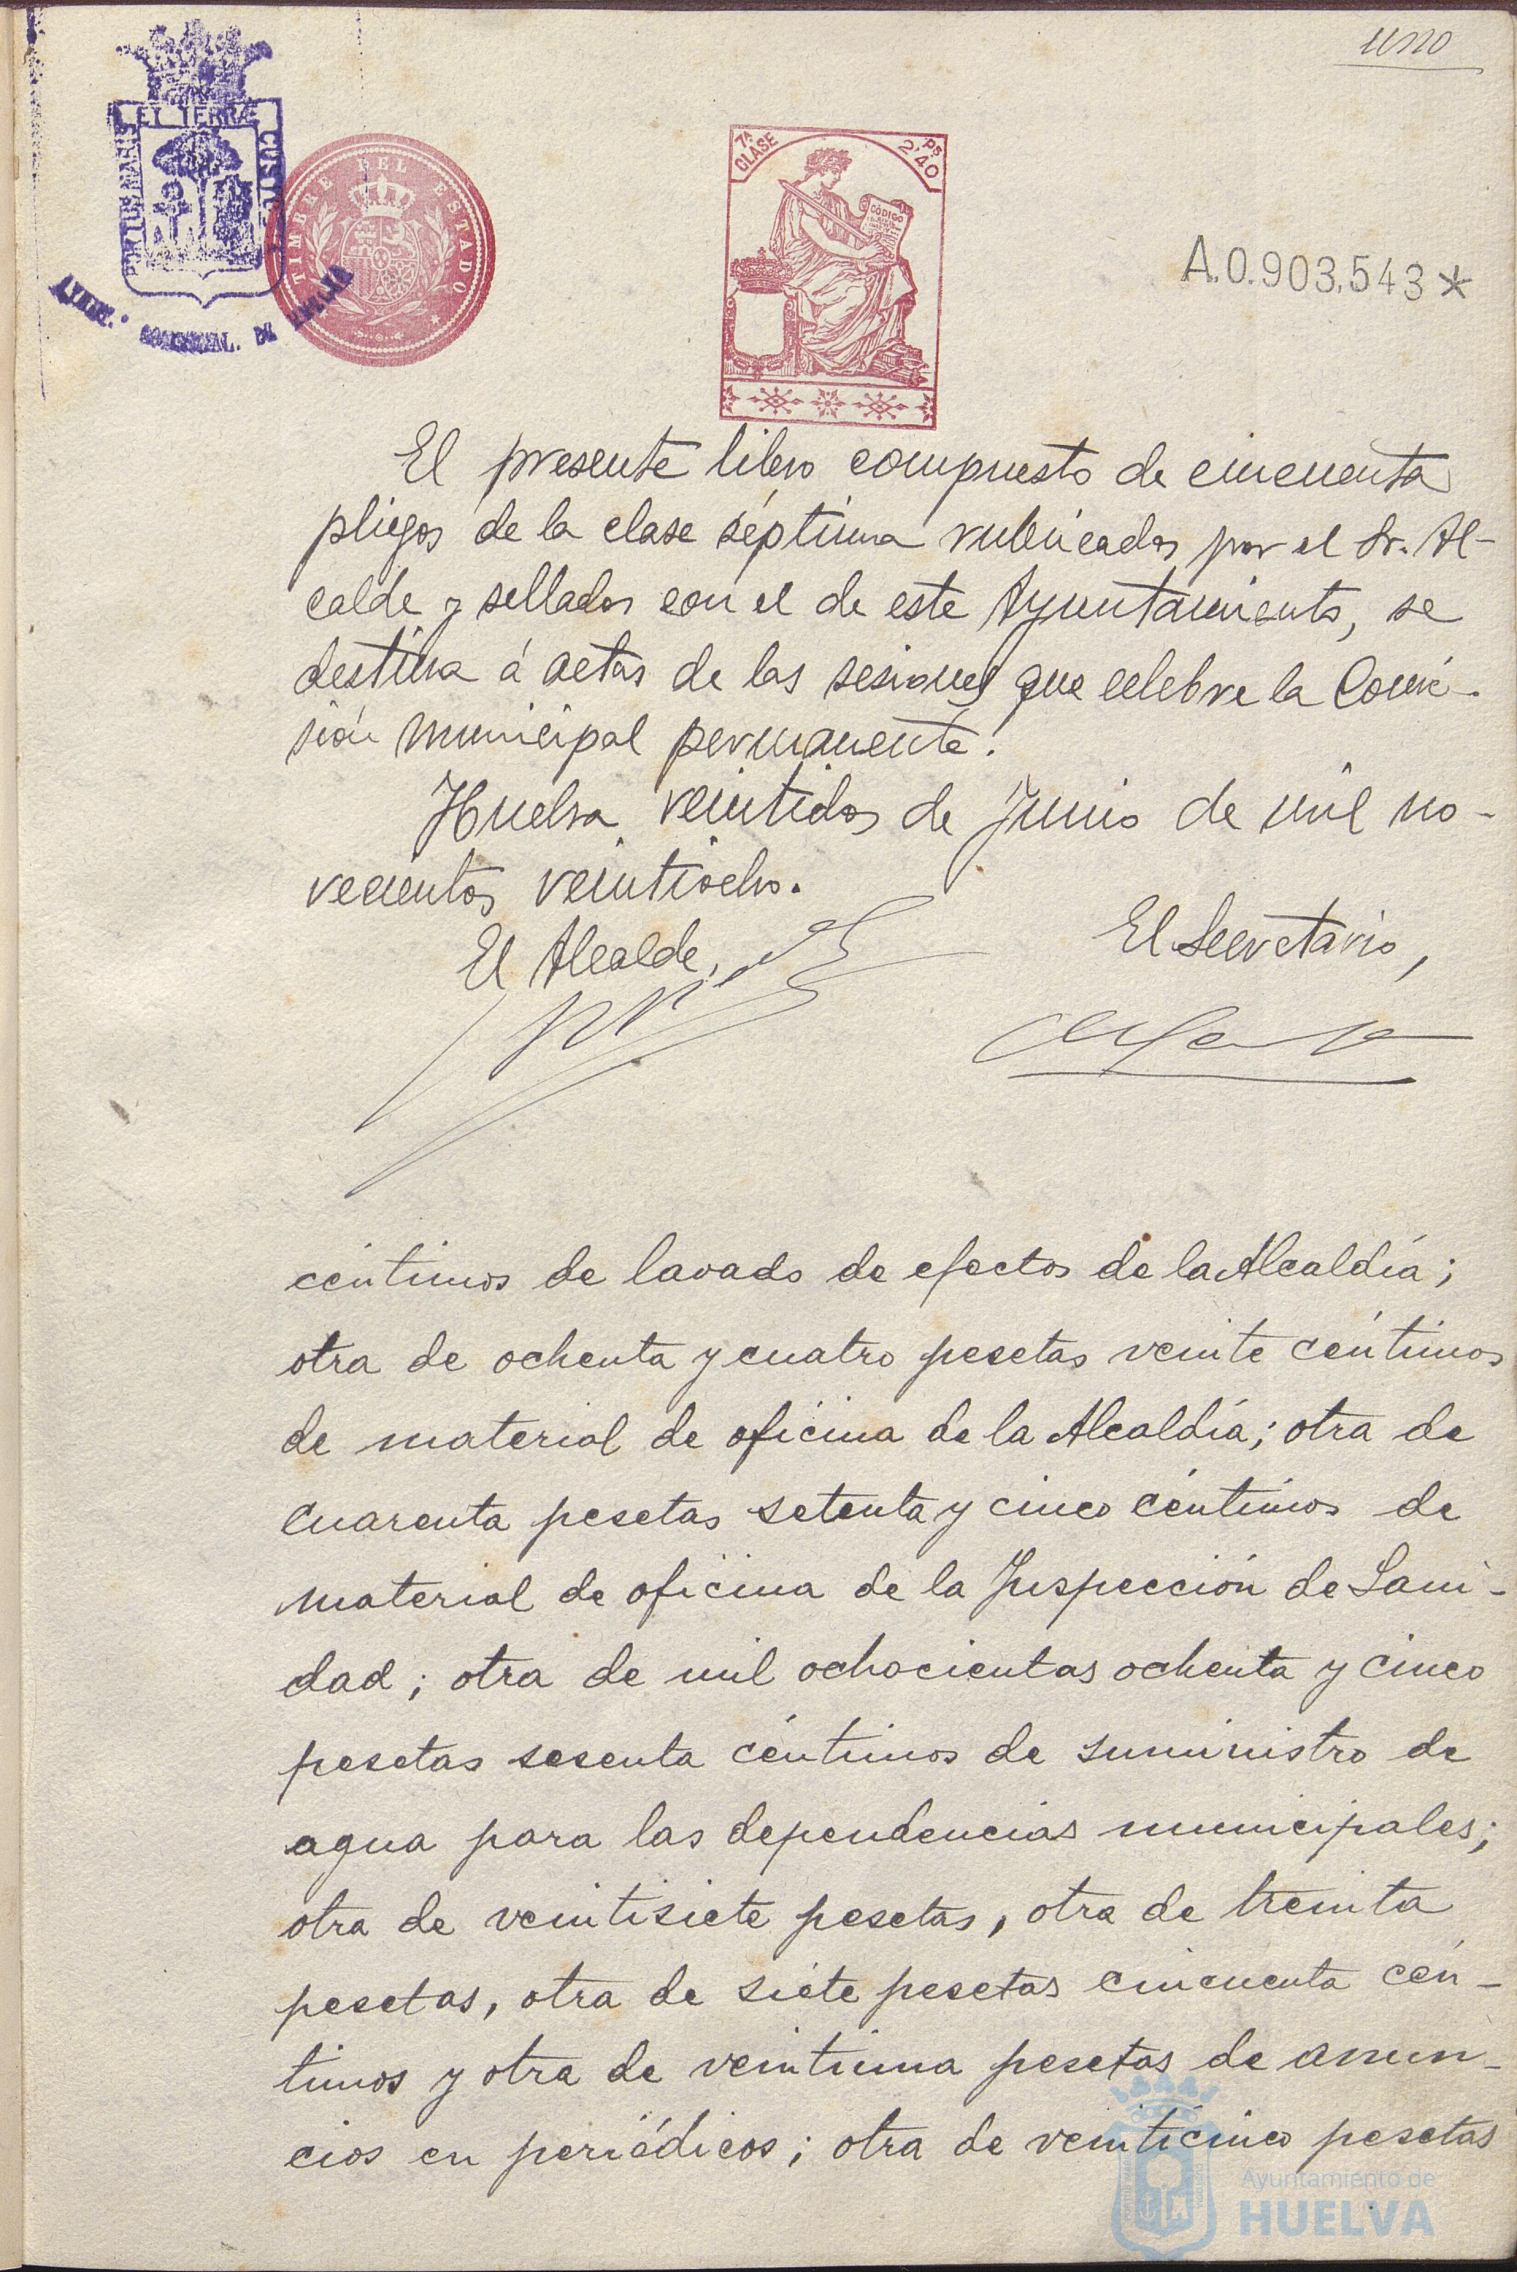 uno
ET TERRÆ
CUSTO
TIMBRE DEL ESTADO
7ª CLASE
Ps 2'40
CÓDIGO
A.0.903,543*
El presente libro compuesto de cincuenta
pliegos de la clase séptima rubricados por el Sr. Al-
calde y sellados con el de este Ayuntamiento, se
destina á actas de las sesiones que celebre la Comi-
sión municipal permanente.
Huelva veintidos de Junio de mil no-
vecientos veintiocho.
El Alcalde,
El Secretario,
céntimos de lavado de efectos de la Alcaldía;
otra de ochenta y cuatro pesetas veinte céntimos
de material de oficina de la Alcaldía; otra de
cuarenta pesetas setenta y cinco céntimos de
material de oficina de la Inspección de Sani-
dad; otra de mil ochocientas ochenta y cinco
pesetas sesenta céntimos de suministro de
agua para las dependencias municipales;
otra de veintisiete pesetas, otra de treinta
pesetas, otra de siete pesetas cincuenta cén-
timos y otra de veintiuna pesetas de anun-
cios en periódicos; otra de veinticinco pesetas
Ayuntamiento de
HUELVA